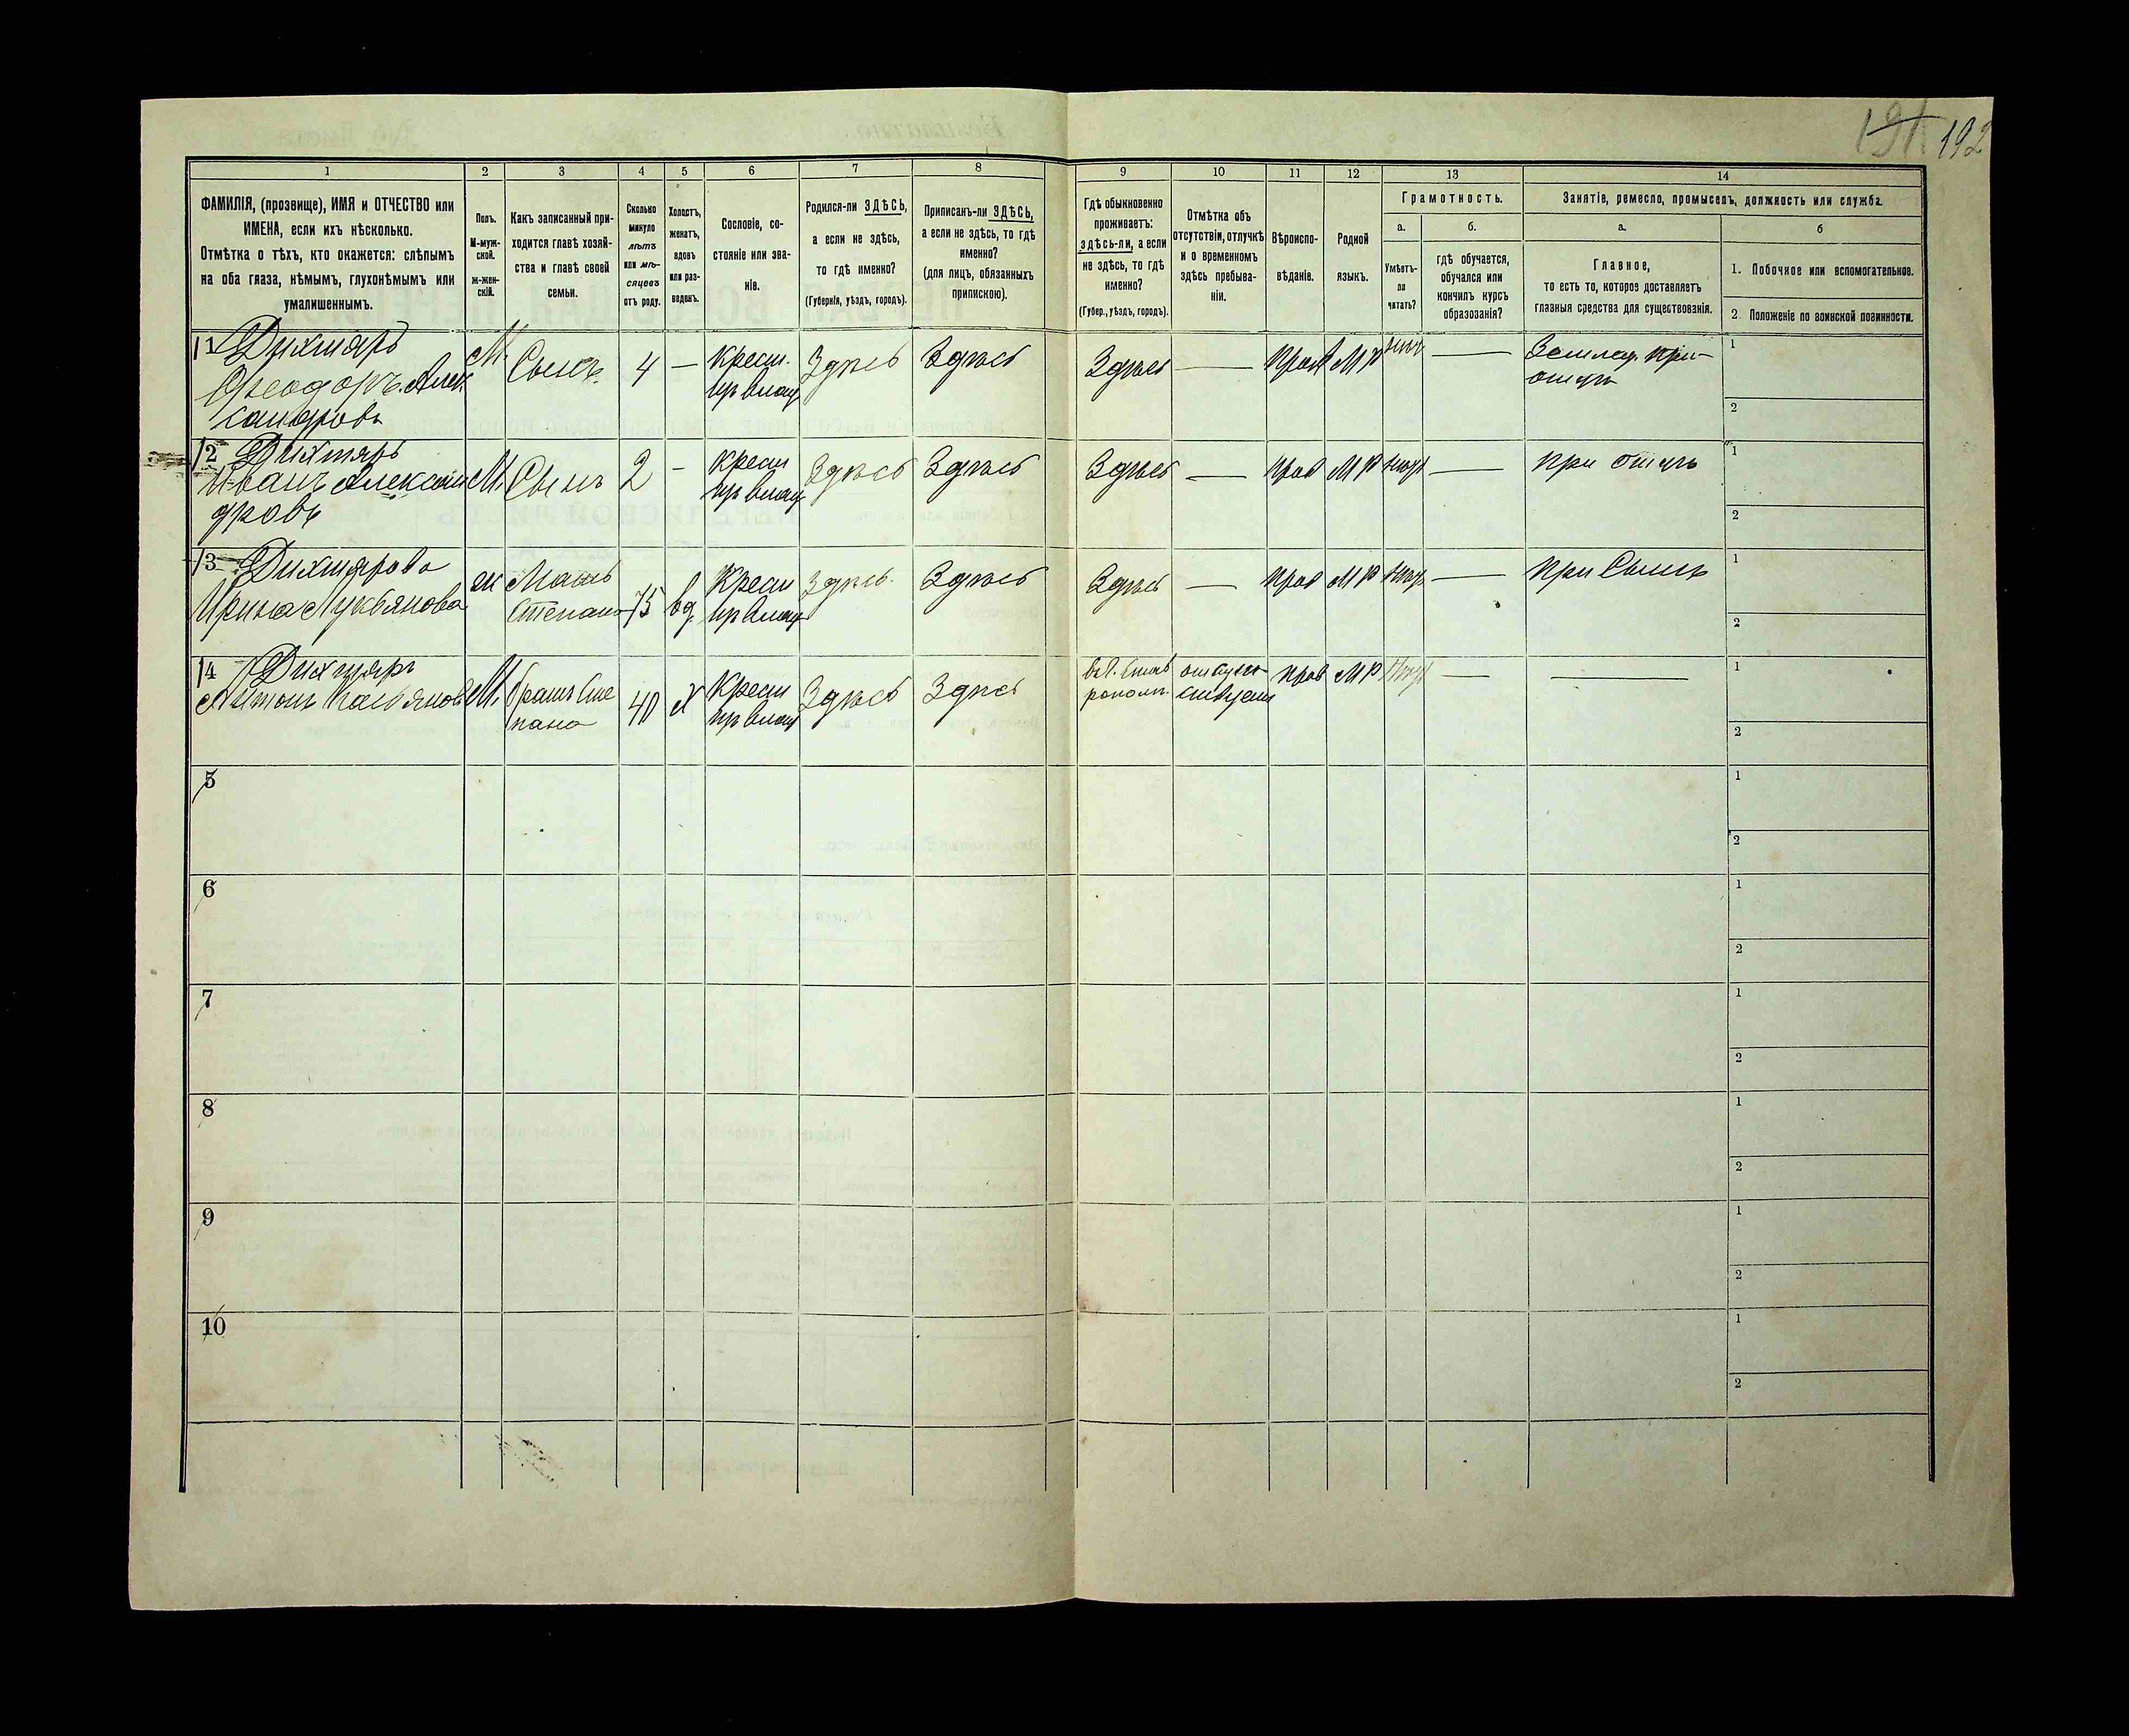 191 192
1 2 3 4 5 6 7 8 9 10 11 12 13 14
ФАМИЛІЯ, (прозвище), ИМЯ и ОТЧЕСТВО или
ИМЕНА, если ихъ нѣсколько.
Отмѣтка о тѣхъ, кто окажется: слѣпымъ
на оба глаза, нѣмымъ, глухонѣмымъ или
умалишеннымъ.
Полъ.
М-муж-
ской.
Ж-жен-
скій.
Какъ записанный при-
ходится главѣ хозяй-
ства и главѣ своей
семьи.
Сколько
минуло
лѣтъ
или мѣ-
сяцевъ
отъ роду.
Холостъ,
женатъ,
вдовъ
или раз-
веденъ.
Сословіе, со-
стояніе или зва-
ніе.
Родился-ли ЗДѢСЬ,
а если не здѣсь,
то гдѣ именно?
(Губернія, уѣздъ, городъ).
Приписанъ-ли ЗДѢСЬ,
а если не здѣсь, то гдѣ
именно?
(для лицъ, обязанныхъ
припискою).
Гдѣ обыкновенно
проживаетъ:
здѣсь-ли, а если
не здѣсь, то гдѣ
именно?
(Губер., уѣздъ, городъ).
Отмѣтка объ
отсутствіи, отлучкѣ
и о временномъ
здѣсь пребыва-
ніи.
Вѣроиспо-
вѣданіе.
Родной
языкъ.
Грамотность.
а.
Умѣетъ-
ли
читать?
б.
гдѣ обучается,
обучался или
кончилъ курсъ
образованія?
Занятіе, ремесло, промыселъ, должность или служба.
а.
Главное,
то есть то, которое доставляетъ
главныя средства для существованія.
б
1. Побочное или вспомогательное.
2. Положеніе по воинской повинности.
11 Дихтяръ
Феодоръ Алек
сандровъ
М. Сынъ 4 — крест.
Здѣсь Здѣсь Здѣсь — прав МР нѣт — Землед. при
отцѣ
1
2
12 Дихтяръ
Иванъ Алексан
дровъ
М. Сынъ 2 — крест
Здѣсь Здѣсь Здѣсь — прав МР — при отцѣ
1
2
13 Дихтярова
Ирина Лукьянова
ж Мать
Степана 75 вд. Крест
Здѣсь Здѣсь Здѣсь — прав МР — при Сынѣ
1
2
14 Дихтяръ
Антонъ Касьянов
М. братъ Сте
пана 40 х Крест
Здѣсь Здѣсь прав МР — —
1
2
5
1
2
6
1
2
7
1
2
8
1
2
9
1
2
10
1
2